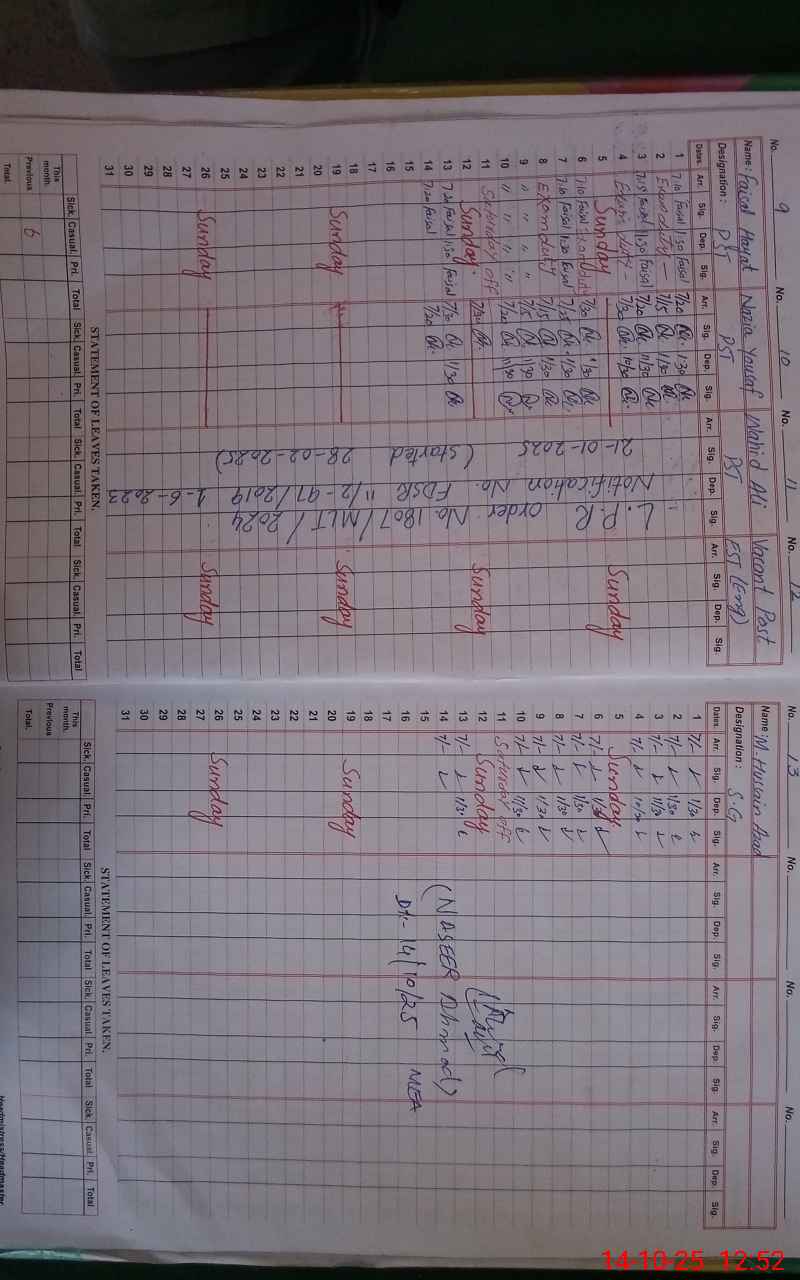 No. 9 No. 10 No. 11 No. 12
Name: Faisal Hayat Nazia Yousaf Wahid Ali Vacant Post
Designation: PST PST PST EST (Eng)
Dates. Arr. Sig. Dep. Sig. Arr. Sig. Dep. Sig. Arr. Sig. Dep. Sig. Arr. Sig. Dep. Sig.
1 7/10 Faisal 1:30 Faisal 7/20 1:30
2 Exam duty 7/15 1/30
3 7/15 Faisal 1:30 Faisal 7/20 11/30
4 Exam duty 7/20 10/30
5 Sunday Sunday
6 7/10 Faisal 7/20 1/30
7 7/10 Faisal 1:30 Faisal 7/25 1/30
8 Exam duty 7/15 1/30
9 " " " " 7/15 11/30
10 " " " " 7/20 11/30
11 Saturday off
12 Sunday Sunday
13 7/20 Faisal 1:30 Faisal 7/30 1/30
14 7/20 Faisal 7/20
15
16
17
18
19 Sunday Sunday
20
21
22
23
24
25
26 Sunday Sunday
27
28
29
30
31
21-01-2025 (started 28-02-2025)
Notification No. FDSR 11/2-97/2019 1-6-2023
L.P.R Order No. 1807/MLT/2024
STATEMENT OF LEAVES TAKEN.
Sick. Casual. Pri. Total Sick. Casual. Pri. Total Sick. Casual. Pri. Total Sick. Casual. Pri. Total
This month.
Previous 6
Total.
No. 13 No. No. No.
Name: M. Hussain Azad
Designation: S.G
Dates. Arr. Sig. Dep. Sig. Arr. Sig. Dep. Sig. Arr. Sig. Dep. Sig. Arr. Sig. Dep. Sig.
1 7/- 1/30
2 7/- 1/30
3 7/- 11/30
4 7/- 10/30
5 Sunday
6 7/- 1/30
7 7/- 1/30
8 7/- 1/30
9 7/- 11/30
10 7/- 11/30
11 Saturday off
12 Sunday
13 7/- 1/30
14 7/-
15
16
17
18
19 Sunday
20
21
22
23
24
25
26 Sunday
27
28
29
30
31
(NASEER Ahmad)
MEA
Dt:- 14/10/25
STATEMENT OF LEAVES TAKEN.
Sick. Casual. Pri. Total Sick. Casual. Pri. Total Sick. Casual. Pri. Total Sick. Casual. Pri. Total
This month.
Previous
Total.
Headmistress/Headmaster
14-10-25 12:52